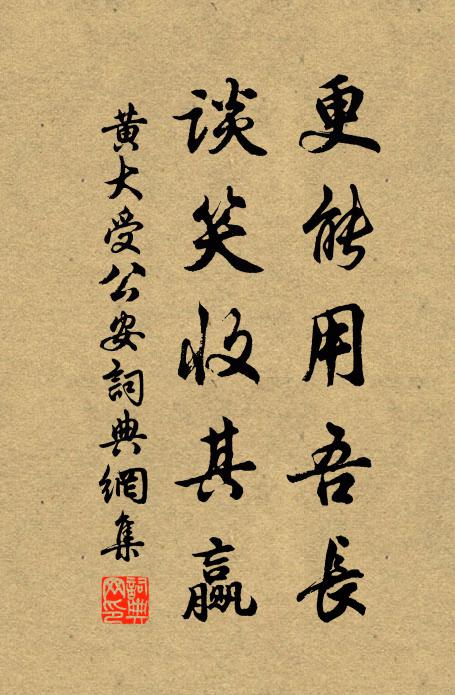 更能用吾長
談笑收其贏
黃大受公安詞典網集
詞典網印